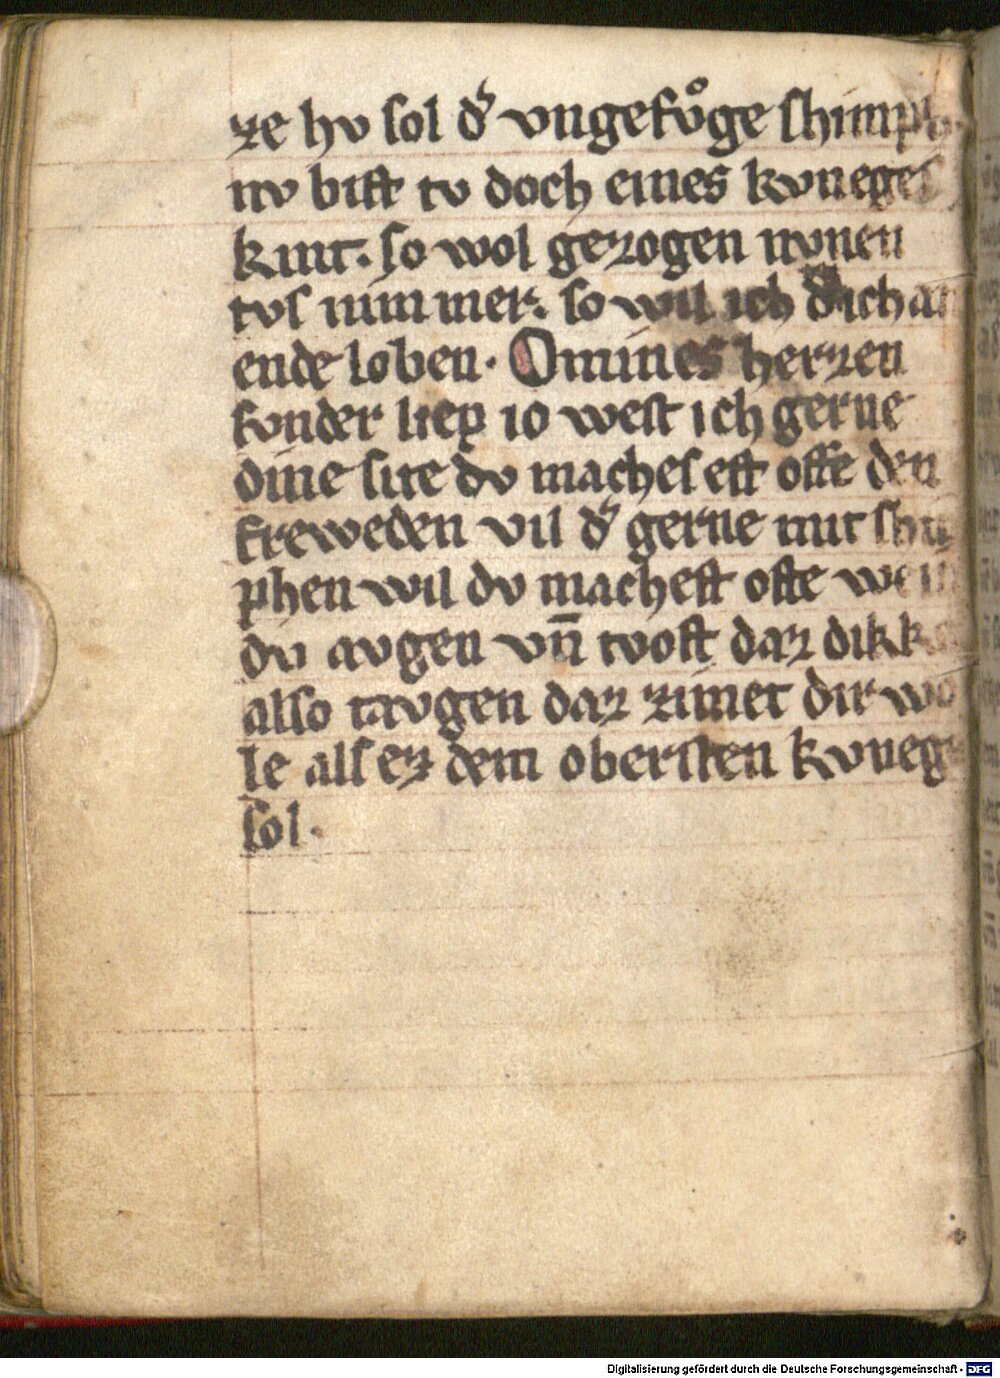 ze hv sol d᷎ vngefvͦge shimph
nv bist tv doch eines kvneges
kint. so wol gezogen wonen
tvs nimmer. so wil ich dich an
ende loben. O mines herzen
svnder liep io west ich gerne
dine site dv maches est offe den
freweden vil d᷎ gerne mit shi
phen wil dv machest ofte
dv avgen vn̄ tvost daz dikk
also tavgen daz zimet dir wo
le als ez dem obersten kvneg
sol.
Digitalisierung gefördert durch die Deutsche Forschungsgemeinschaft - DFG